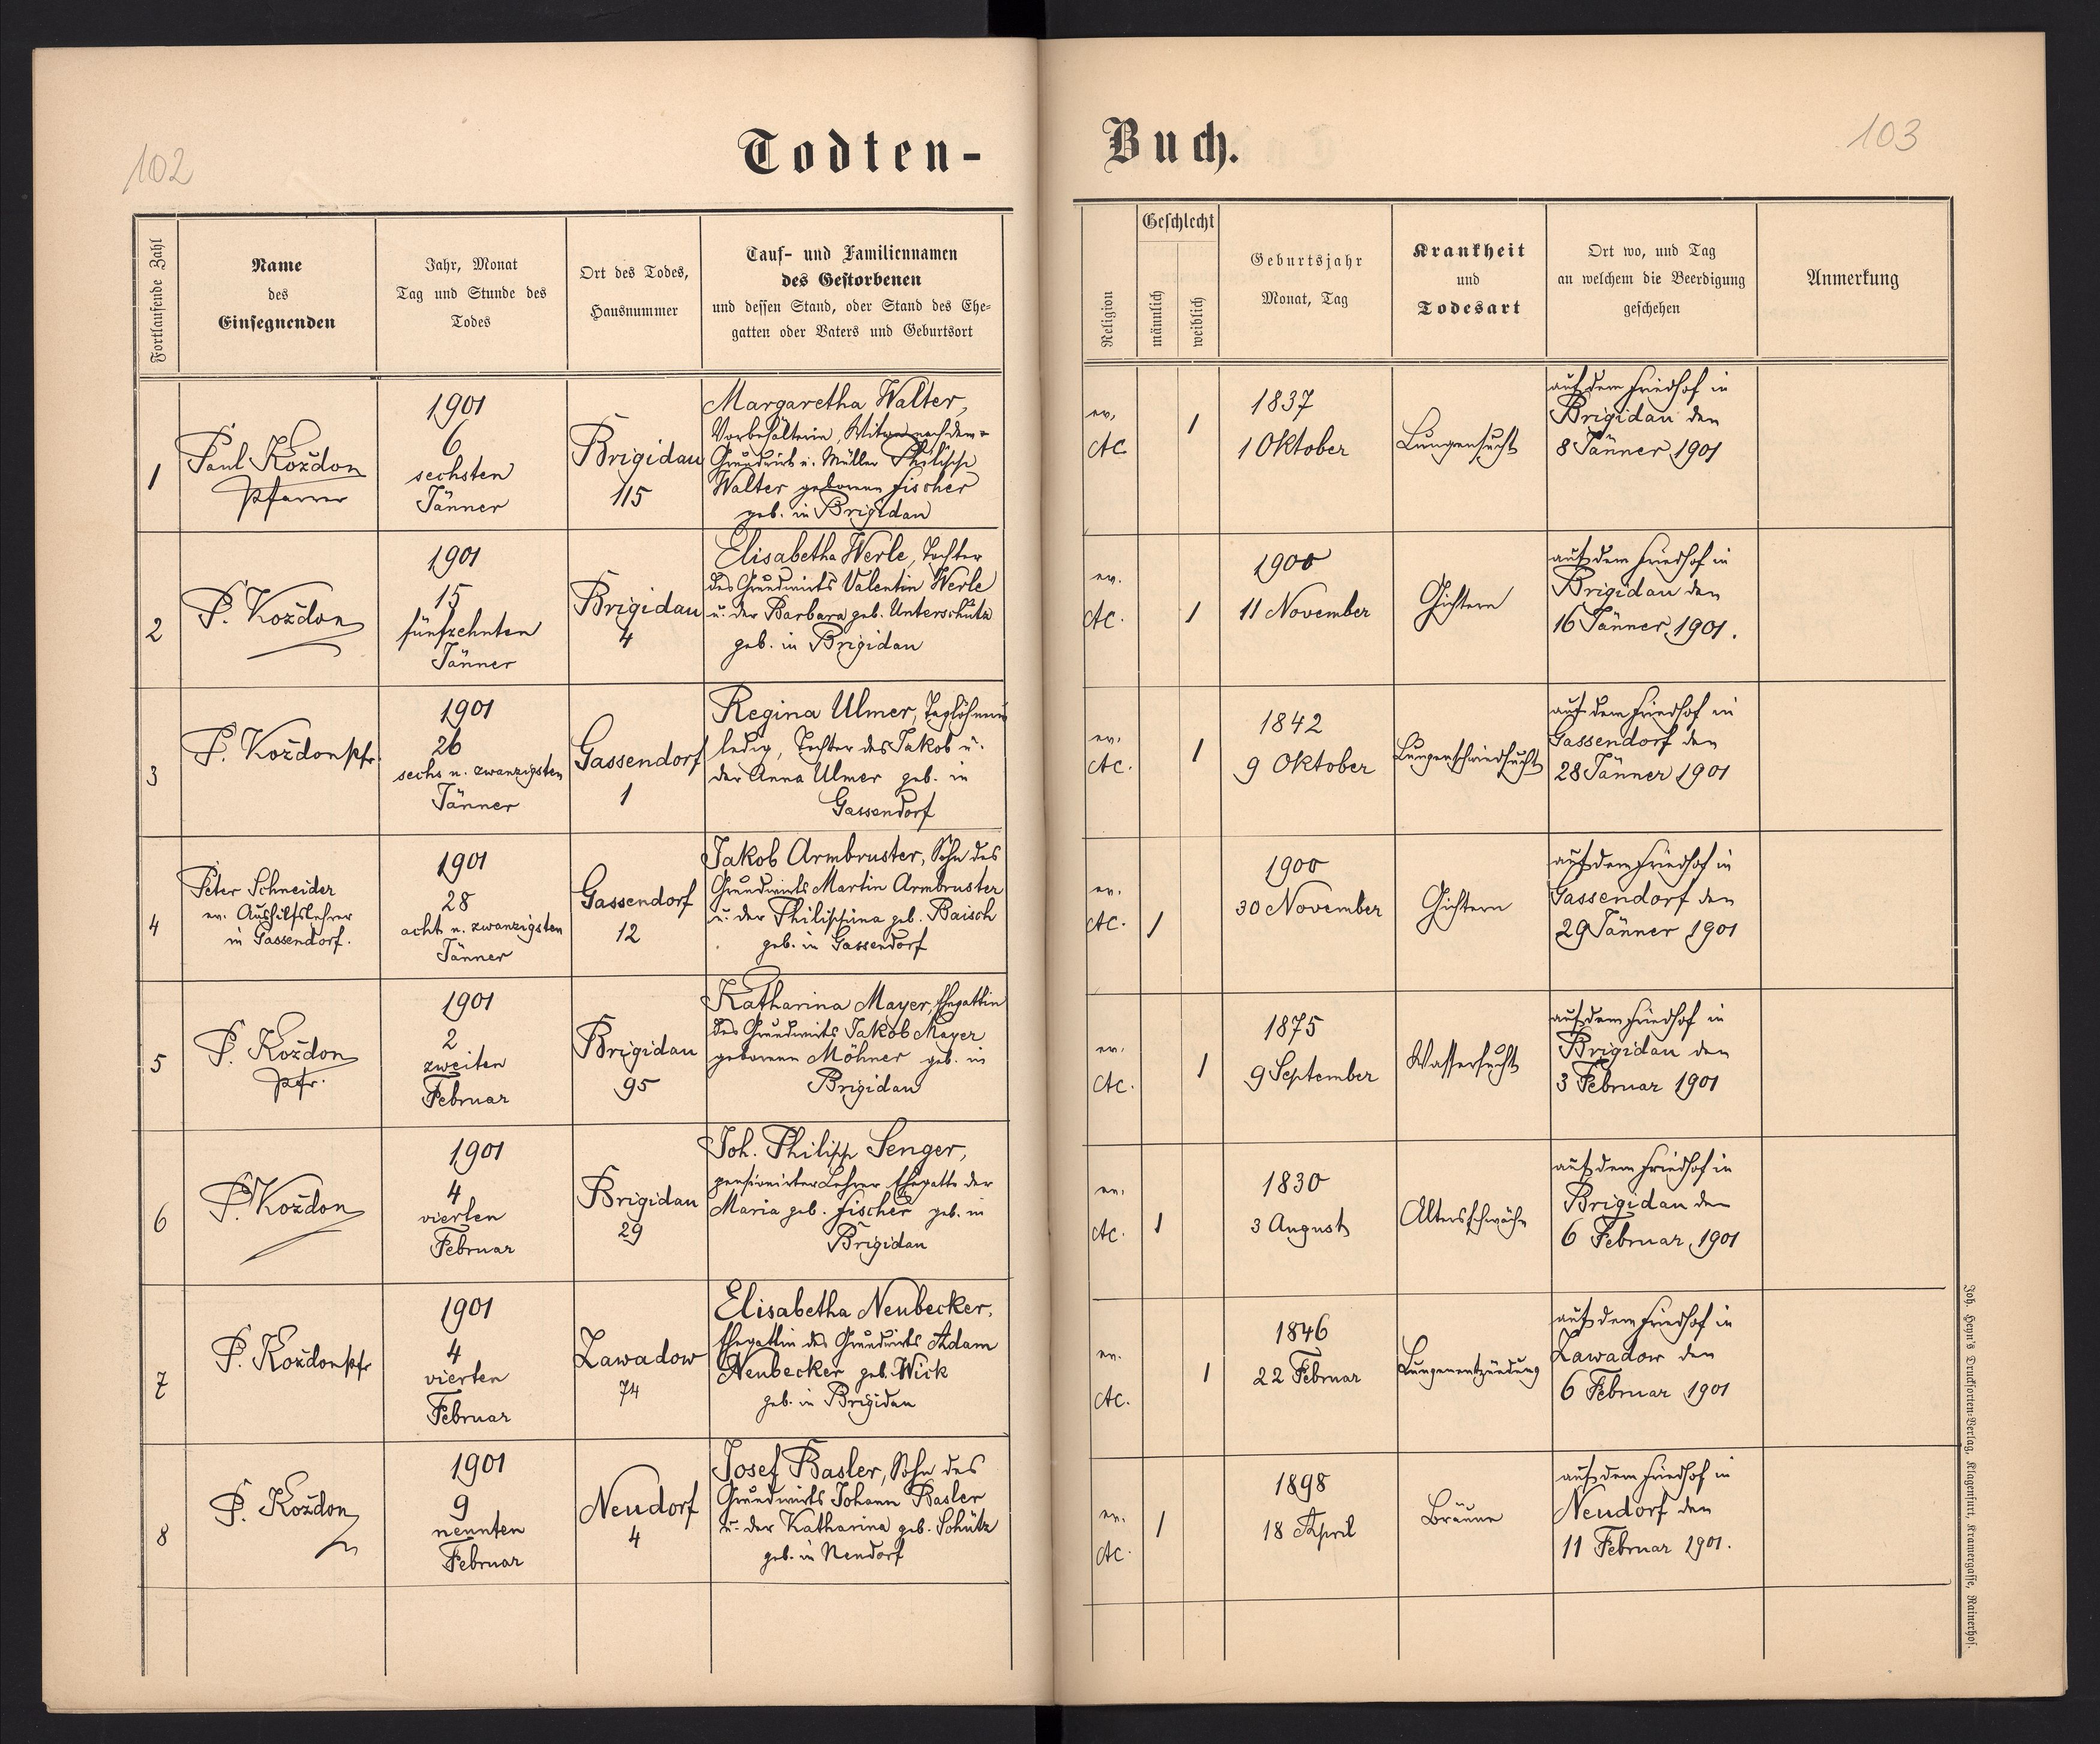 102
Todten-
Fortlaufende Zahl
Name
des
Einsegnenden
Jahr, Monat
Tag und Stunde des
Todes
Ort des Todes,
Hausnummer
Tauf- und Familiennamen
des Gestorbenen
und dessen Stand, oder Stand des Ehe-
gatten oder Vaters und Geburtsort
1
Paul Koždon
Pfarrer
1901
6
sechsten
Jänner
Brigidau
115
Margaretha Walter,
Vorbehälterin, Witwe nach dem
Grundwirt u. Müller Philipp
Walter geborene Fischer
geb. in Brigidau
2
P. Koždon
1901
15
fünfzehnten
Jänner
Brigidau
4
Elisabetha Werle, Tochter
des Grundwirts Valentin Werle
u. der Barbara geb. Unterschütz
geb. in Brigidau
3
P. Koždon Pfr.
1901
26
sechs u. zwanzigsten
Jänner
Gassendorf
1
Regina Ulmer, Taglöhnerin
ledig, Tochter des Jakob u.
der Anna Ulmer geb. in
Gassendorf
4
Peter Schneider
ev. Aushilfslehrer
in Gassendorf.
1901
28
acht u. zwanzigsten
Jänner
Gassendorf
12
Jakob Armbruster, Sohn des
Grundwirts Martin Armbruster
u. der Philippina geb. Baisch
geb. in Gassendorf
5
P. Koždon
Pfr.
1901
2
zweiten
Februar
Brigidau
95
Katharina Mayer, Ehegattin
des Grundwirts Jakob Mayer
geborene Möhner geb. in
Brigidau
6
P. Koždon
1901
4
vierten
Februar
Brigidau
29
Joh. Philipp Senger,
pensionierter Lehrer Ehegatte der
Maria geb. Fischer geb. in
Brigidau
7
P. Koždon Pfr
1901
4
vierten
Februar
Zawadow
74
Elisabetha Neubecker,
Ehegattin des Grundwirts Adam
Neubecker geb. Wick
geb. in Brigidau
8
P. Koždon
1901
9
neunten
Februar
Neudorf
4
Josef Basler, Sohn des
Grundwirts Johann Basler
u. der Katharina geb. Schütz
geb. in Neudorf
103
Buch.
Religion
Geschlecht
männlich
weiblich
Geburtsjahr
Monat, Tag
Krankheit
und
Todesart
Ort wo, und Tag
an welchem die Beerdigung
geschehen
Anmerkung
ev.
AC
1
1837
1 Oktober
Lungensucht
auf dem Friedhof in
Brigidau den
8 Jänner 1901
ev.
AC.
1
1900
11 November
Gichtern
auf dem Friedhof in
Brigidau den
16 Jänner 1901.
ev.
AC.
1
1842
9 Oktober
Lungenschwindsucht
auf dem Friedhof in
Gassendorf den
28 Jänner 1901
ev.
AC.
1
1900
30 November
Gichtern
auf dem Friedhof in
Gassendorf den
29 Jänner 1901
ev.
AC.
1
1875
9 September
Wassersucht
auf dem Friedhof in
Brigidau den
3 Februar 1901
ev.
AC.
1
1830
3 August
Altersschwäche
auf dem Friedhof in
Brigidau den
6 Februar 1901
ev.
AC.
1
1846
22 Februar
Lungenentzündung
auf dem Friedhof in
Zawadow den
6 Februar 1901
ev.
AC.
1
1898
18 April
Bräune
auf dem Friedhof in
Neudorf den
11 Februar 1901.
Joh. Heyn's Drucksorten-Verlag, Klagenfurt, Kramergasse, Rainerhof.